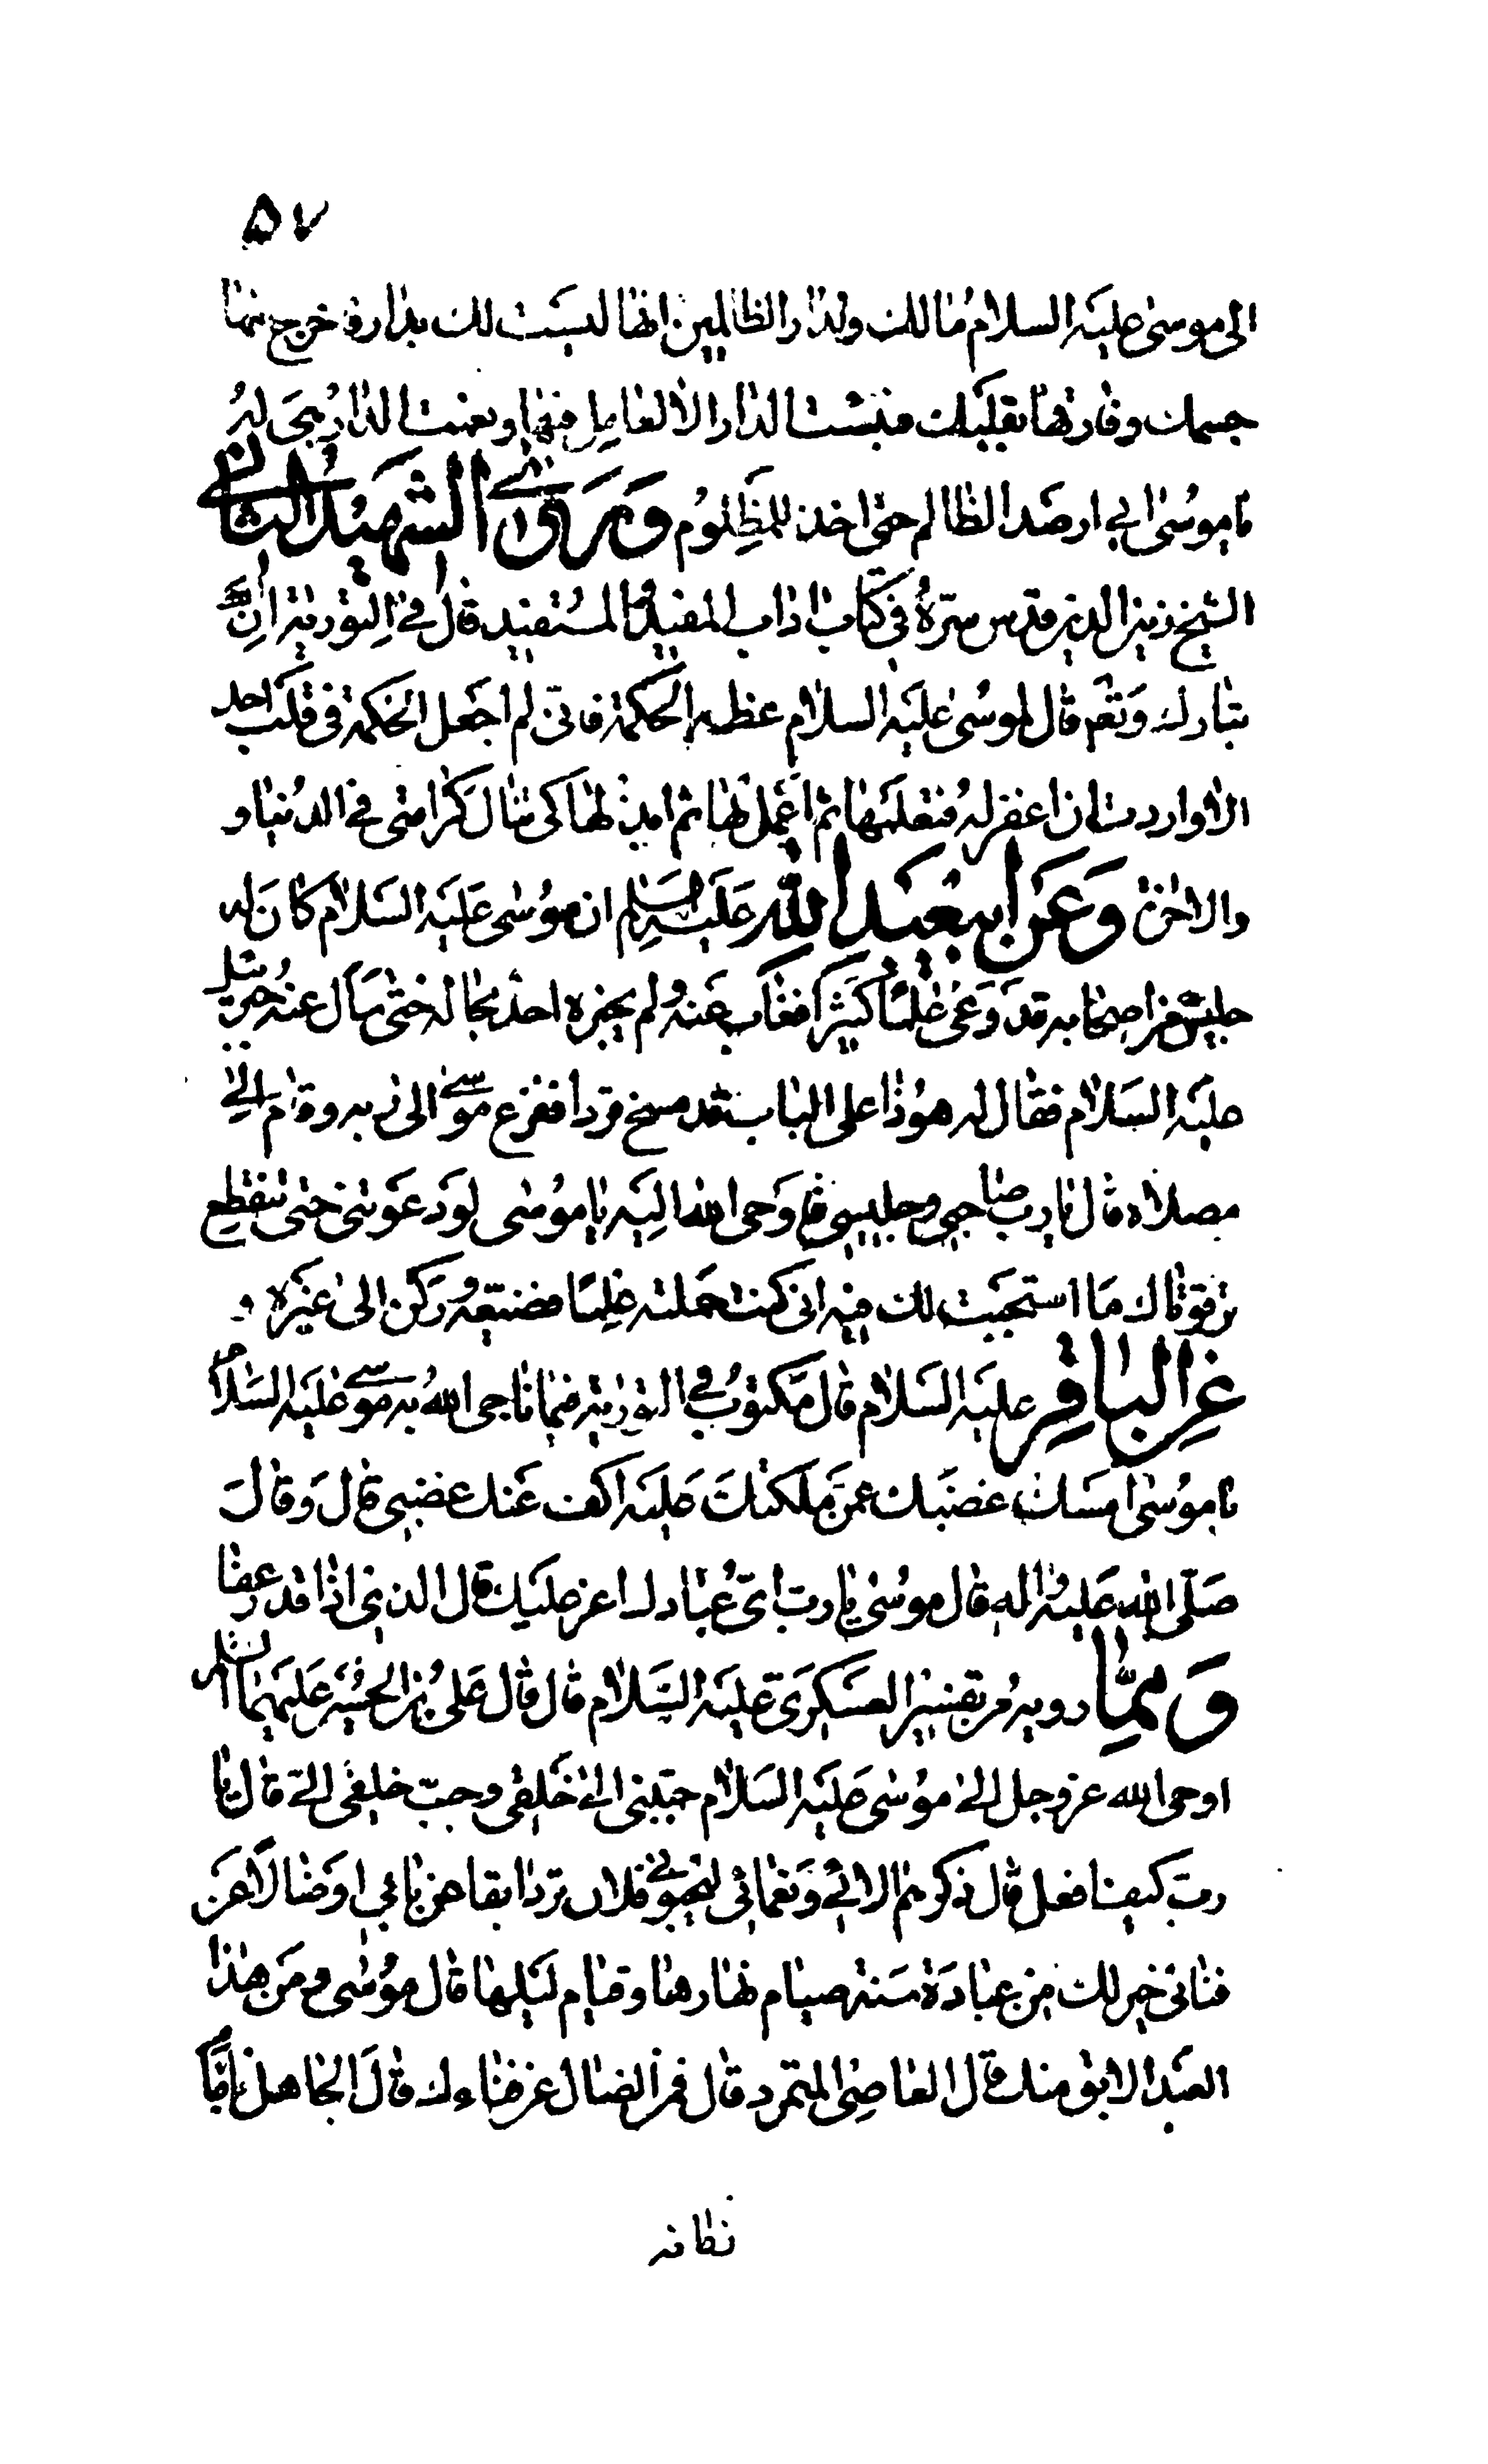 ٥٧
الى موسى عليه السلام مالك ولدار الظالمين انها ليست لك بدار فاخرج منها
جسمك وفارقها بقلبك فبئست الدار الا لعامل فيها ونعمت الدار يجى له
يا موسى ابي ارصد الظالم حتى اخذ للمظلوم وروى الشهيد الثانى
الشيخ زين الدين قدس سره في كتاب اداب المفيد والمستفيد قال في التورية ان الله
تبارك وتعم قال لموسى عليه السلام عظم الحكمة فانى لم اجعل الحكمة في قلب احد
الا واردت ان اغفر له فتعلمها ثم اعمل بها ثم ابذلها كى تنال كرامتى في الدنيا و
والاخرة وعن ابيعبد الله عليه السلم ان موسى عليه السلام كان له
جليس من اصحابه قد وعى علما كثيرا فغاب عنه ولم يخبره احد بحاله حتى سأل عنه جبرئيل
عليه السلام فقال له هوذا على الباب قد مسخ قردا ففزع موسى الى ربه وقام الى
مصلاه قال يارب صاحبى وجليسى فاوحى الله اليه يا موسى لو دعوتنى حتى تنقطع
ترقوتاك ما استجبت لك فيه انى كنت حملته علما فضيعه وركن الى غيره و
عن الباقر عليه السلام قال مكتوب في التورية فيما ناجى الله به موسى عليه السلام
يا موسى امسك غضبك عمن ملكتك عليه اكف عنك غضبى قال وقال
صلى الله عليه واله قال موسى يا رب اى عبادك اعز عليك قال الذى اذا قدر عفا
ومما رويه من تفسير العسكرى عليه السلام قال قال على بن الحسين عليهما السلام
اوحى الله عز وجل الى موسى عليه السلام حببنى الى خلقى وحبب خلقى الى قال يا
رب كيف افعل قال ذكرهم الائى ونعمائى ليحبونى فلان ترد ابقا عن بابى او ضالا عن
فنائى خير لك من عبادة سنة صيام نهارها وقيام ليلها قال موسى ومن هذا
العبد الابق منك قال العاصى المتمرد قال فمن الضال عن فناءك قال الجاهل بامام
زمانه